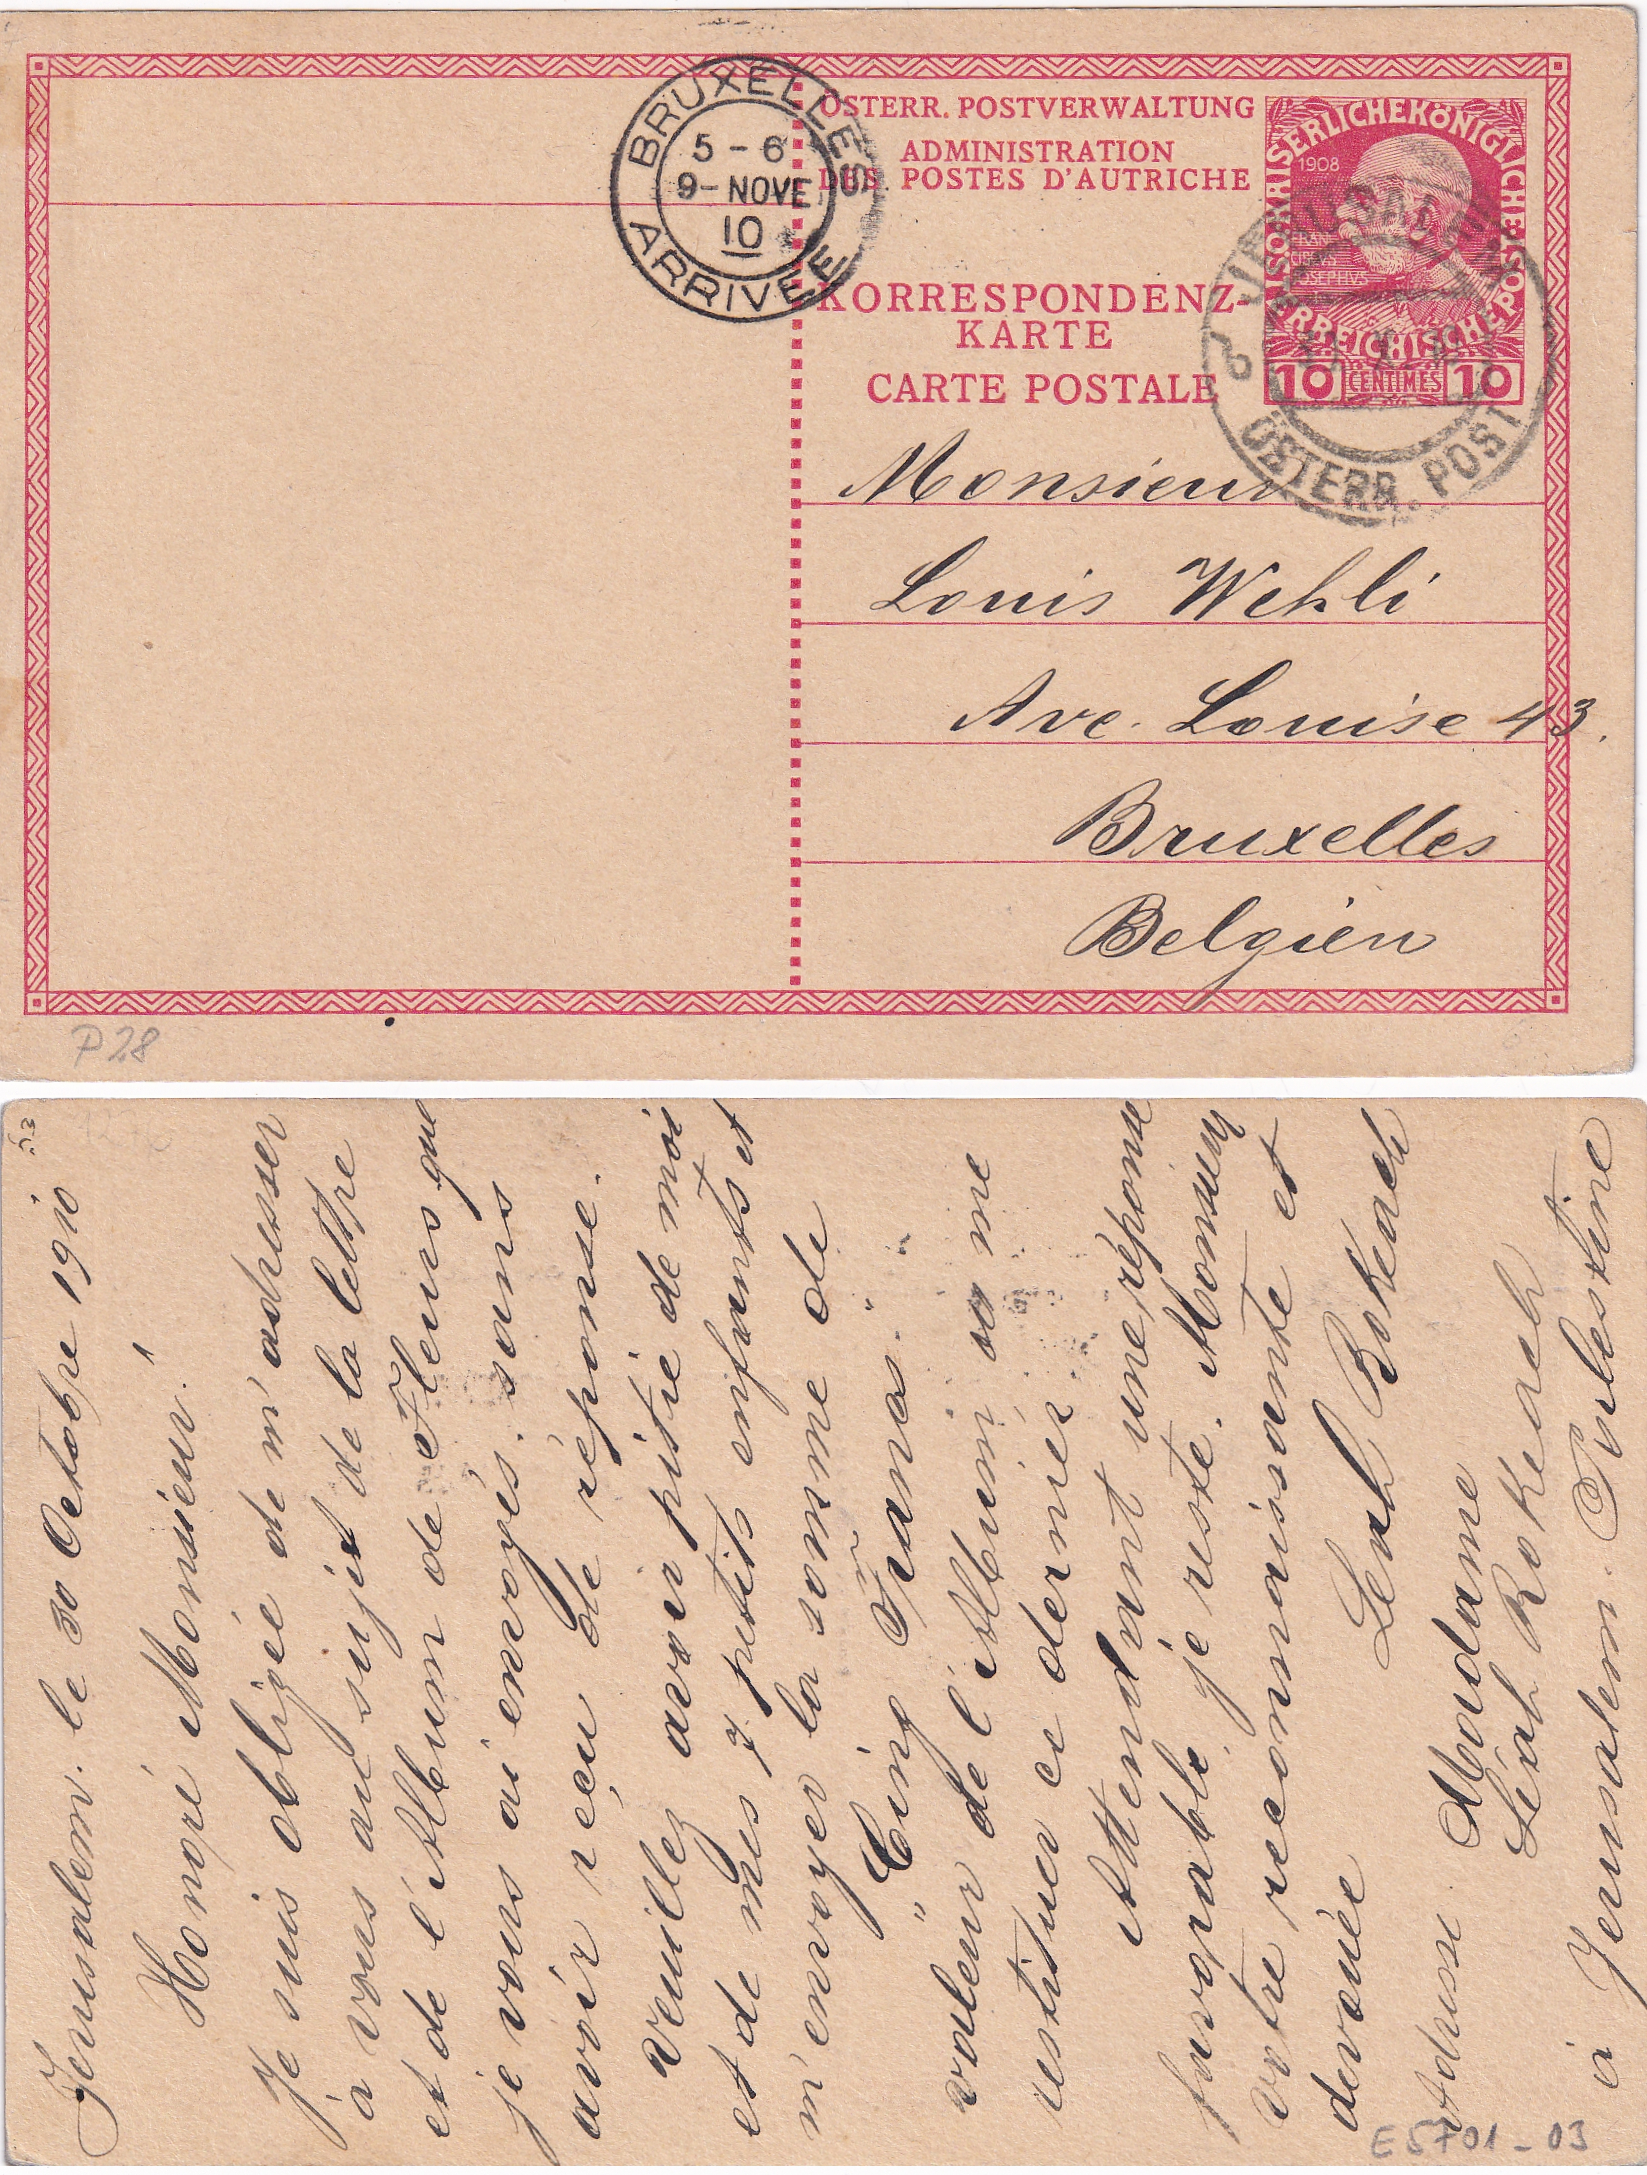 BRUXELLES
5-6
9-NOVE
10
ARRIVÉE
ÖSTERR. POSTVERWALTUNG
ADMINISTRATION
DES POSTES D'AUTRICHE
KORRESPONDENZ-
KARTE
CARTE POSTALE
KAISERLICHEKÖNIGLICHE
ÖSTERREICHISCHEPOST
1908
10 CENTIMES 10
JERUSALEM
ÖSTERR. POST
Monsieur
Louis Wehli
Ave. Louise 43.
Bruxelles
Belgien
P 28
Jerusalem. le 30 Octobre 1910
Honoré Monsieur!
Je suis obligée de m'adresser
à vous au sujet de la lettre
et de l'Album de Fleurs que
je vous ai envoyés. sans
avoir reçu de réponse.
Veuillez avoir pitié de moi
et de mes 7 petits enfants et
m'envoyer la somme de
"Cinq Francs."
valeur de l'Album, ou me
restituer ce dernier
Attendant une réponse
favorable, je reste. Monsieur
votre reconnaissante et
devouée
Leah Rokeach
Adresse. Madame
Léah Rokeach
à Jerusalem. Palestine
E5701-03